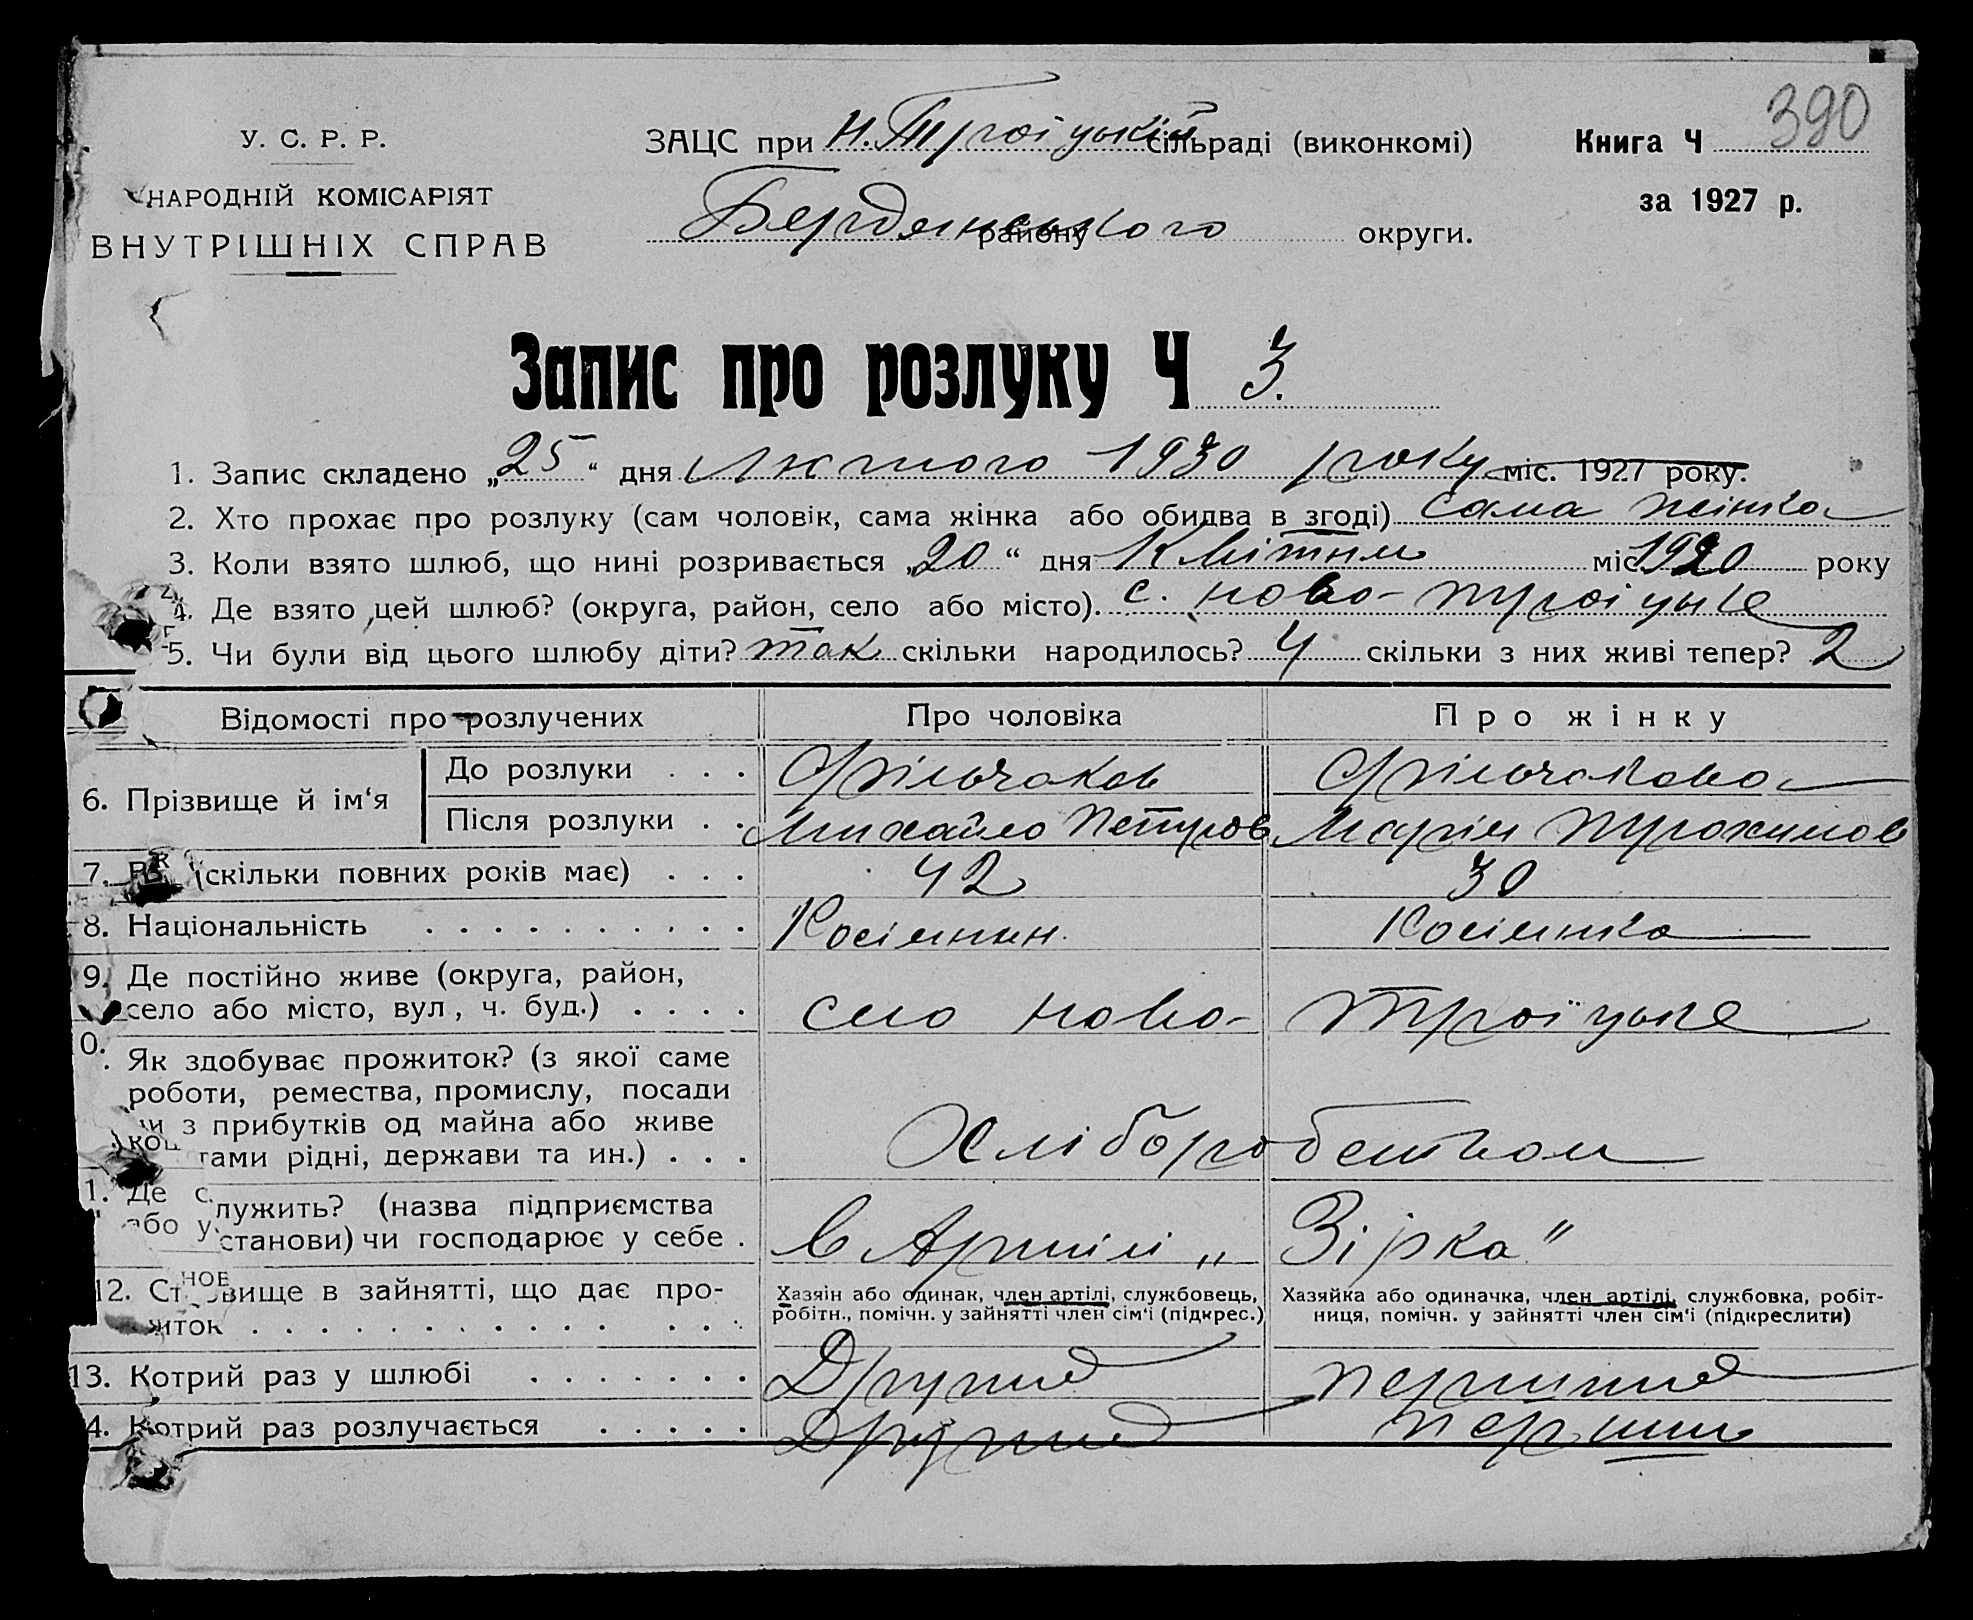 У. С. Р. Р.
НАРОДНІЙ КОМІСАРІЯТ
ВНУТРІШНІХ СПРАВ
ЗАЦС при Н. Троїцькій сільраді (виконкомі)
Бердянського району округи.
Книга Ч 390
за 1927 р.
Запис про розлуку Ч 3.
1. Запис складено „25“ дня Лютого 1930 року міс. 1927 року.
2. Хто прохає про розлуку (сам чоловік, сама жінка або обидва в згоді) сама жінка
3. Коли взято шлюб, що нині розривається „20“ дня Квітня міс. 1920 року
4. Де взято цей шлюб? (округа, район, село або місто). с. Ново-Троїцьке
5. Чи були від цього шлюбу діти? так скільки народилось? 4 скільки з них живі тепер? 2
Відомості про розлучених Про чоловіка Про жінку
6. Прізвище й ім‘я
До розлуки . . . Фільчаков Фільчакова
Після розлуки . . Михайло Петров Марія Трохимов
7. (скільки повних років має) . . . 42 30
8. Національність . . . . . . . . . . Росіянин. Росіянка
9. Де постійно живе (округа, район,
село або місто, вул, ч. буд.) . . . . село Ново- Троїцьке
0. Як здобуває прожиток? (з якої саме
роботи, ремества, промислу, посади
чи з прибутків од майна або живе
коштами рідні, держави та ин.) . . . Хліборобством
1. Де служить? (назва підприємства
або установи) чи господарює у себе . в Артілі „Зірка"
12. Становище в зайнятті, що дає про-
житок . . . . . . . . . . . . . . .
Хазяін або одинак, член артілі, службовець,
робітн., помічн. у зайнятті член сім‘і (підкрес.)
Хазяйка або одиначка, член артілі, службовка, робіт-
ниця, помічн. у зайнятті член сім‘і (підкреслити)
13. Котрий раз у шлюбі . . . . . . . Другий перший
4. Котрий раз розлучається . . . . . Другий перший